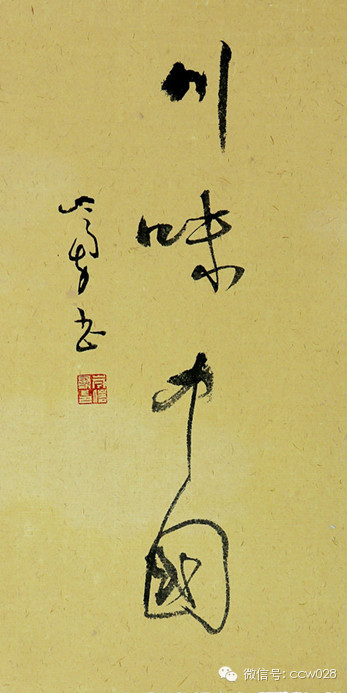 川味中國
书
微信号: ccw028